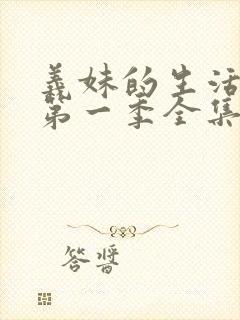 義妹的生活
第一季全集
答醬